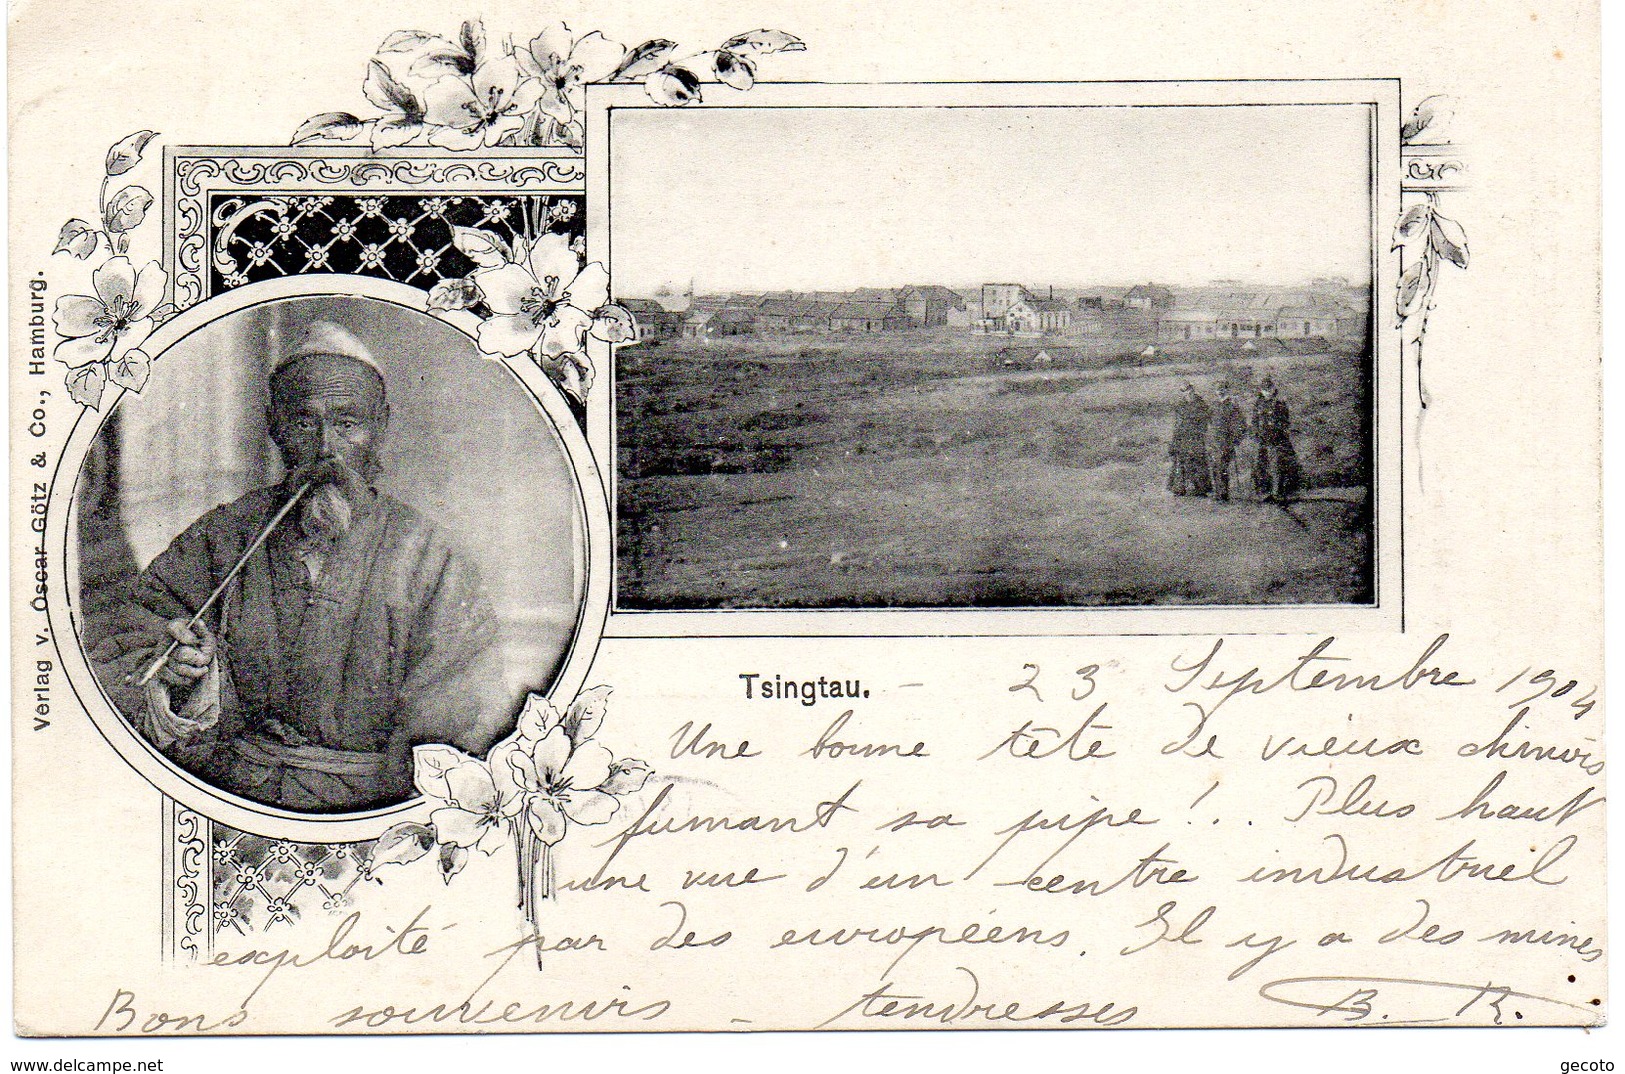 Verlag v. Oscar Götz & Co., Hamburg.
Tsingtau. – 23 Septembre 1904
Une bonne tête de vieux chinois
fumant sa pipe !.. Plus haut
une vue d'un centre industruel
exploité par des européens. Il y a des mines
Bons souvenirs – tendresses B. R.
www.delcampe.net
gecoto